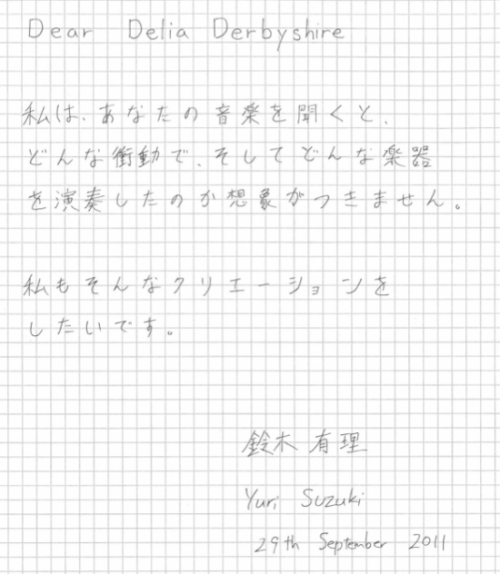 Dear Delia Derbyshire
私は、あなたの音楽を聞くと、
どんな衝動で、そしてどんな楽器
を演奏したのか想象がつきません。
私もそんなクリエーションを
したいです。
鈴木 有理
Yuri Suzuki
29th September 2011